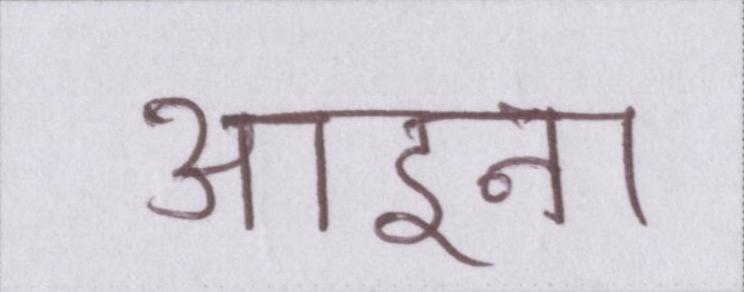 आइना